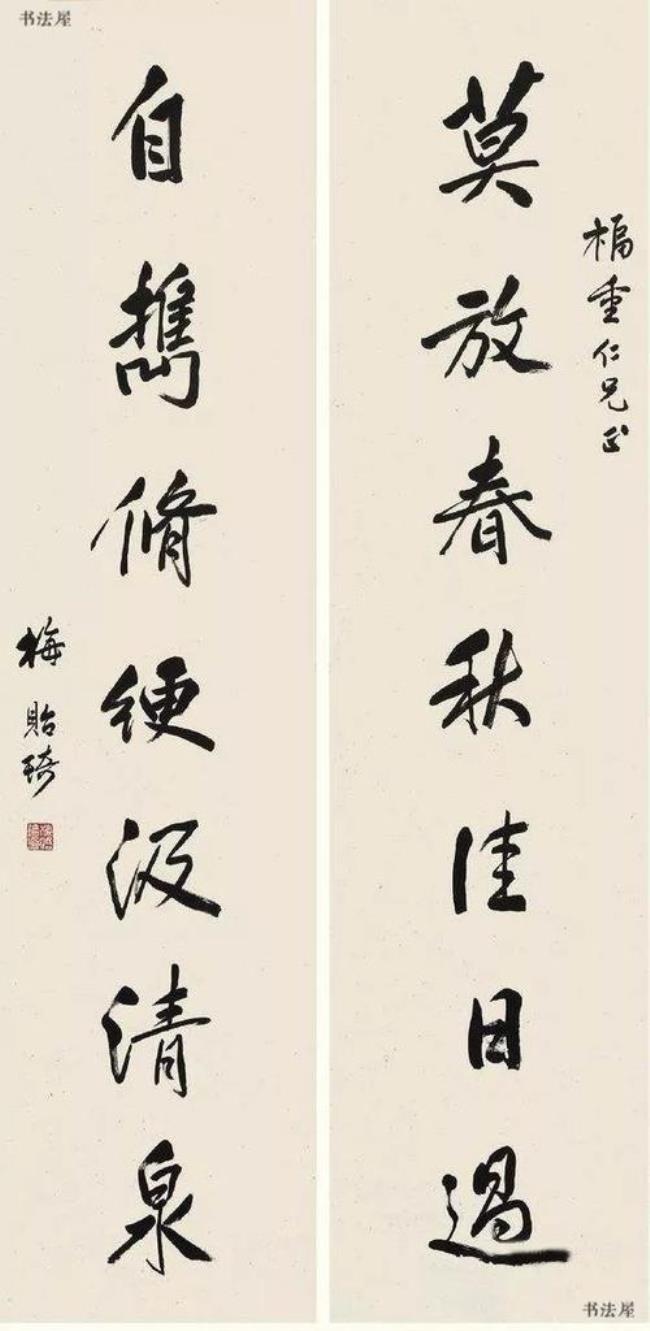 书法屋
楅重仁兄正
莫放春秋佳日過
自擕脩綆汲清泉
梅貽琦
书法屋